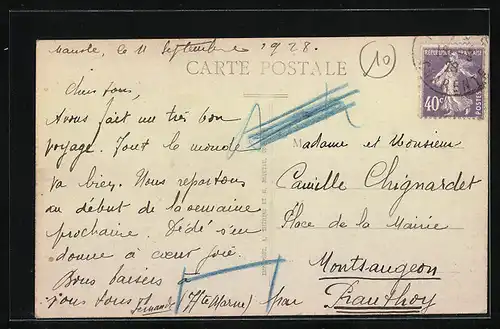 Mansle, le 11 Septembre 1928.
CARTE POSTALE
10
REPUBLIQUE FRANCAISE
40c
POSTES
Chers tous,
Avons fait un très bon
voyage. Tout le monde
va bien. Nous repartons
au début de la semaine
prochaine. Dédé s'en
donne à cœur joie.
Bons baisers à
vous tous
Fernande
Madame et Monsieur
Camille Chignardet
Place de la Mairie
Montsaugeon
par Prauthoy
Hte (Marne)